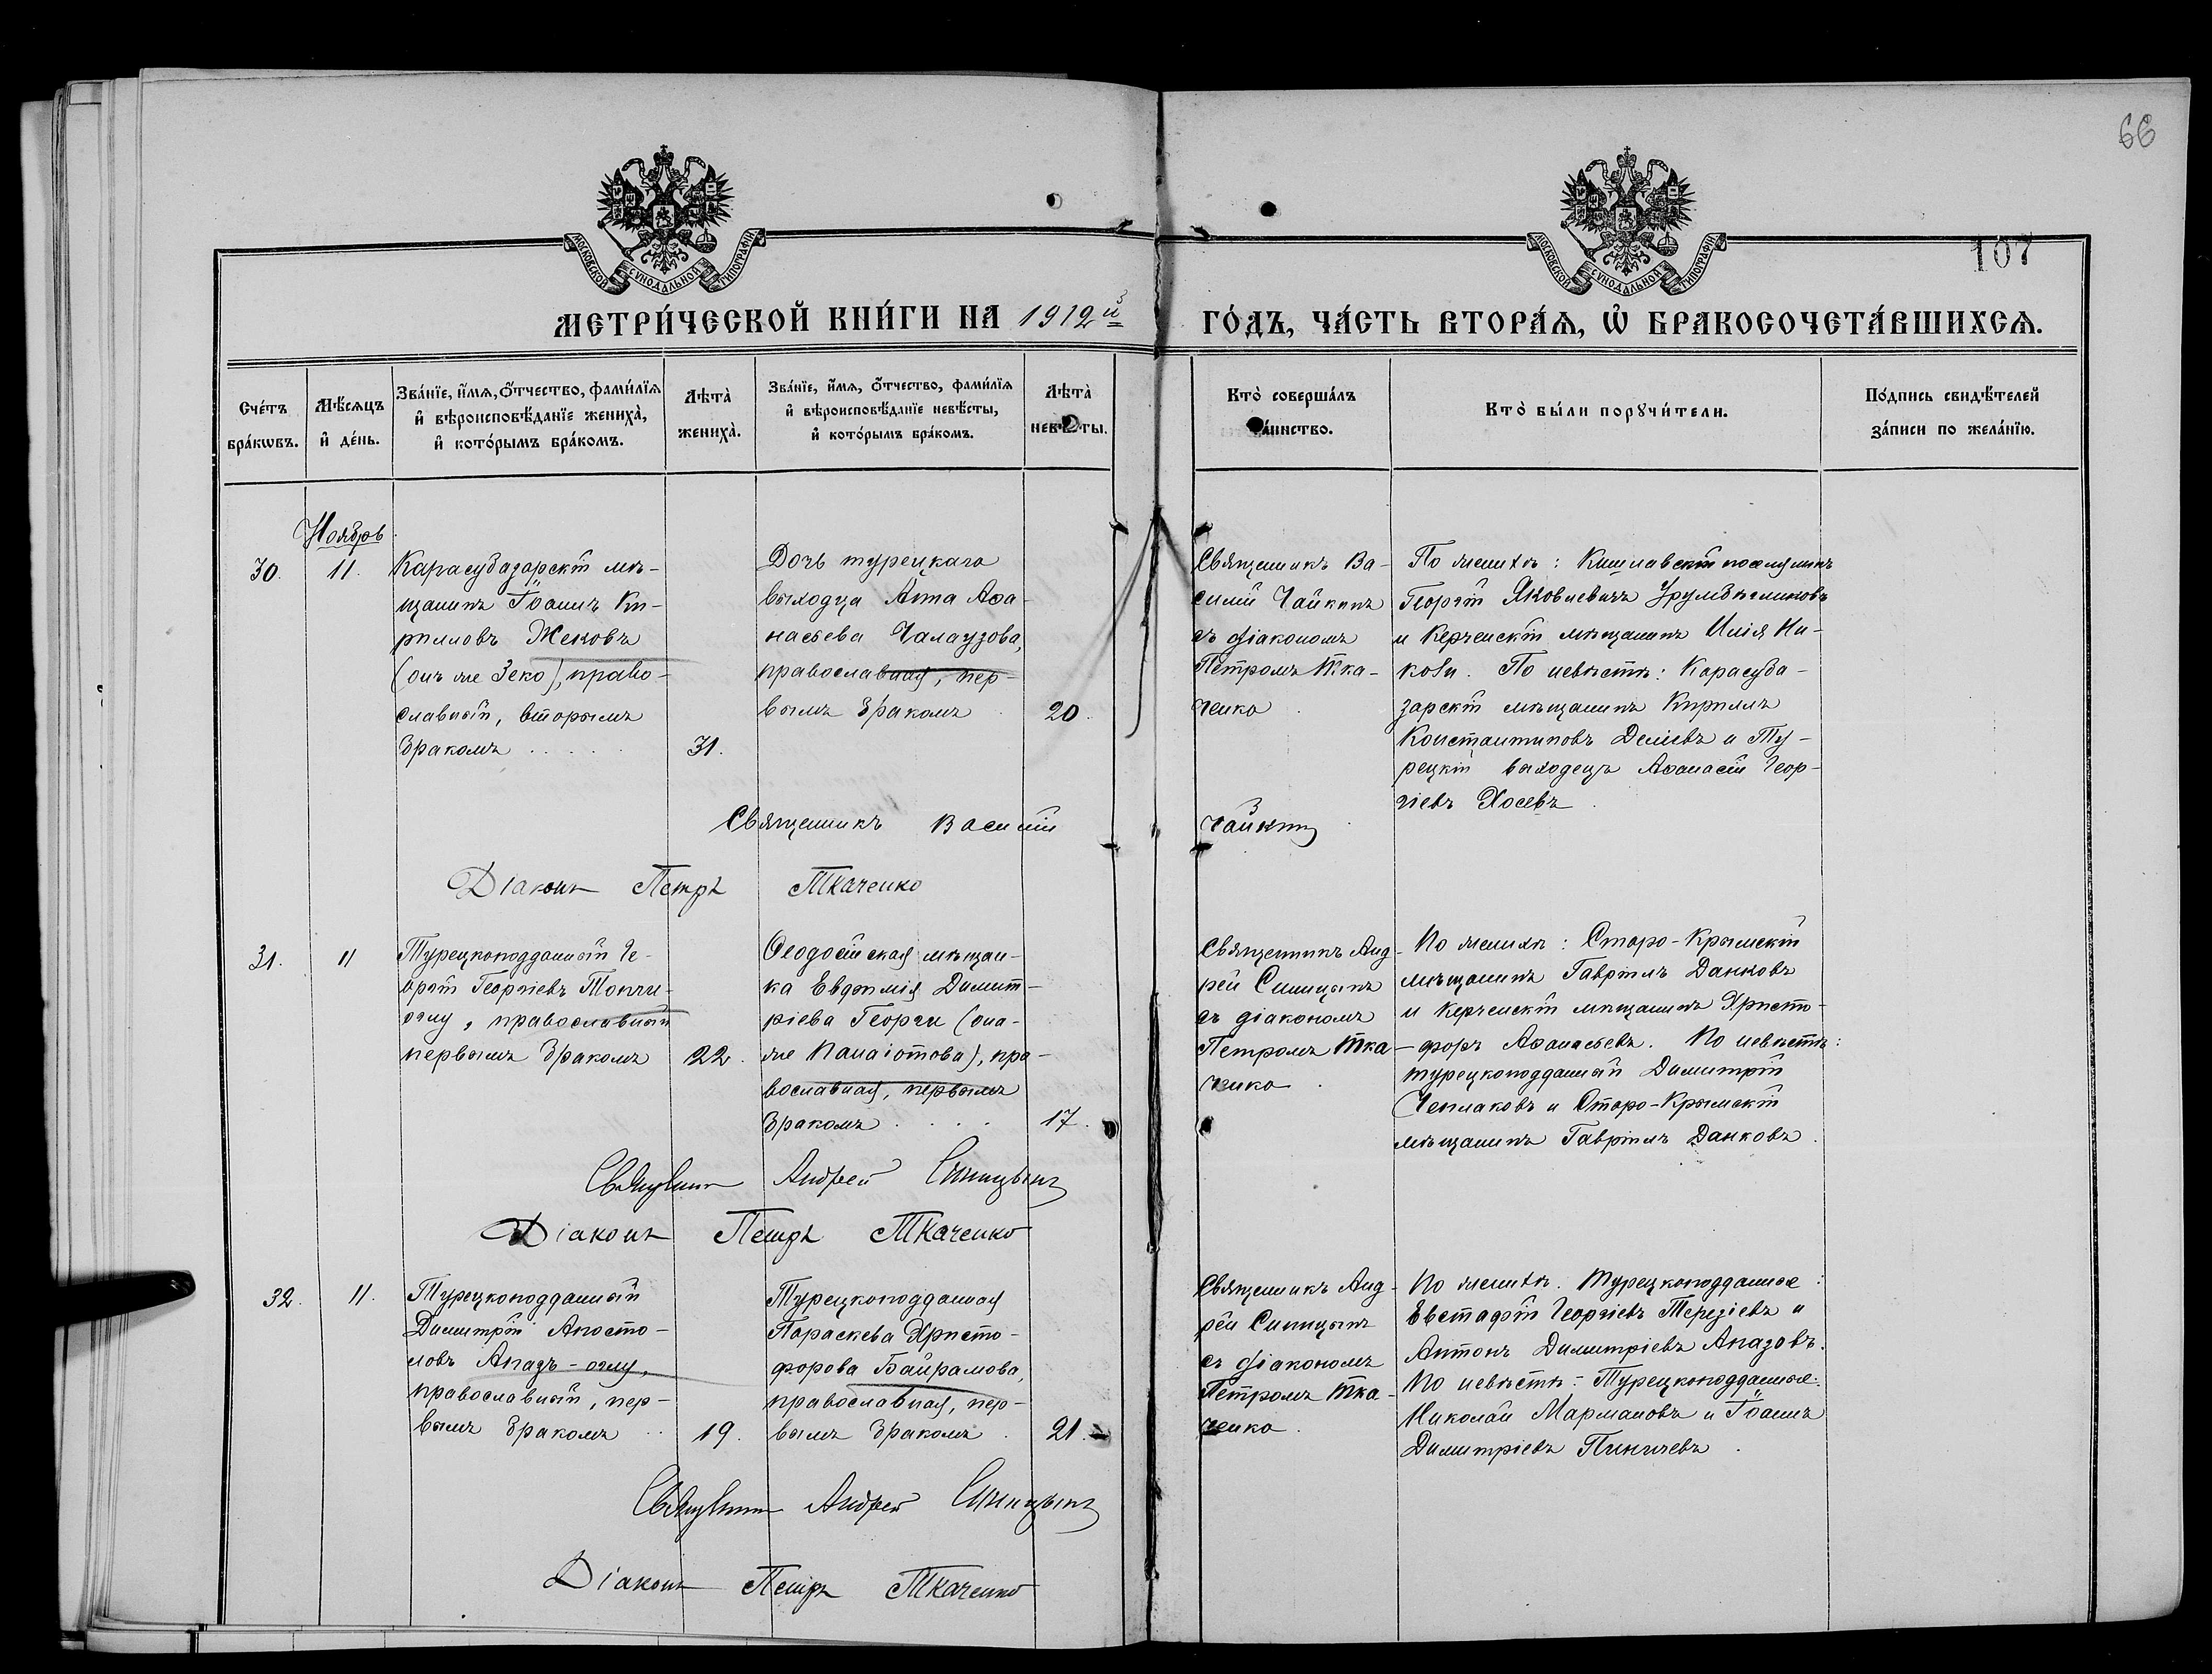 66
107
МОСКОВСКОЙ СѴНОДАЛЬНОЙ ТИПОГРАФІИ
МОСКОВСКОЙ СѴНОДАЛЬНОЙ ТИПОГРАФІИ
МЕТРИ́ЧЕСКОЙ КНИ́ГИ НА 1912й
ГО́ДЪ, ЧА́СТЬ ВТОРА́Ѧ, Ѽ БРАКОСОЧЕТА́ВШИХСѦ.
Сче́тъ бра́кѡвъ.
Мѣ́сяцъ и҆ де́нь.
Зва́нїе, и҆́мя, ѻ҆́тчество, фами́лїя
и҆ вѣроисповѣ́данїе жениха̀,
и҆ кото́рымъ бра́комъ.
Лѣта̀
жениха̀.
Зва́нїе, и҆́мя, ѻ҆́тчество, фами́лїя
и҆ вѣроисповѣ́данїе невѣ́сты,
и҆ кото́рымъ бра́комъ.
Лѣта̀
невѣ́сты.
Кто̀ соверша́лъ
та́инство.
Кто̀ бы́ли порꙋчи́тели.
По́дпись свидѣ́телей
за́писи по жела́нїю.
Ноябрь
30.
11.
Карасубазарскій мѣ-
щанинъ Іоаннъ Ки-
рилловъ Жековъ
(онъ же Зеко), право-
славный, вторымъ
бракомъ
31.
Дочь турецкаго
выходца Анна Аѳа-
насьева Чалаузова,
православная, пер-
вымъ бракомъ
20.
Священникъ Ва-
силій Чайкинъ
съ діакономъ
Петромъ Тка-
ченко
По женихѣ: Кишлавскій поселянинъ
Георгій Яковлевичъ
и Керченскій мѣщанинъ Илія Ни-
коли. По невѣстѣ: Карасуба-
зарскій мѣщанинъ Кириллъ
Константиновъ Деліевъ и Ту-
рецкій выходецъ Аѳанасій Геор-
гіевъ Хосевъ
Священникъ Василій Чайкинъ
Діаконъ Петръ Ткаченко
31.
11
Турецкоподданный Ге-
оргій Георгіевъ Топчи-
оглу, православный
первымъ бракомъ
22.
Ѳеодосійская мѣщан-
ка Евфимія Димит-
ріева Георги (она-
же Панаіотова), пра-
вославная, первымъ
бракомъ
17.
Священникъ Анд-
рей Синицынъ
съ діакономъ
Петромъ Тка-
ченко
По женихѣ: Старо-Крымскій
мѣщанинъ Гавріилъ Данковъ
и Керченскій мѣщанинъ Христо-
форъ Аѳанасьевъ. По невѣстѣ:
турецкоподданный Димитрій
Чеплаковъ и Старо-Крымскій
мѣщанинъ Гавріилъ Данковъ.
Священникъ Андрей Синицынъ
Діаконъ Петръ Ткаченко
32.
11.
Турецкоподданный
Димитрій Апосто-
ловъ Апазъ-оглу,
православный, пер-
вымъ бракомъ
19.
Турецкоподданная
Параскева Христо-
форова Байрамова,
православная, пер-
вымъ бракомъ
21.
Священникъ Анд-
рей Синицынъ
съ діакономъ
Петромъ Тка-
ченко.
По женихѣ. Турецкоподданные:
Евстафій Георгіевъ Терезіевъ и
Антонъ Димитріевъ Апазовъ.
По невѣстѣ: Турецкоподданные:
Николай Мармановъ и Іоаннъ
Димитріевъ Пиничевъ
Священникъ Андрей Синицынъ
Діаконъ Петръ Ткаченко